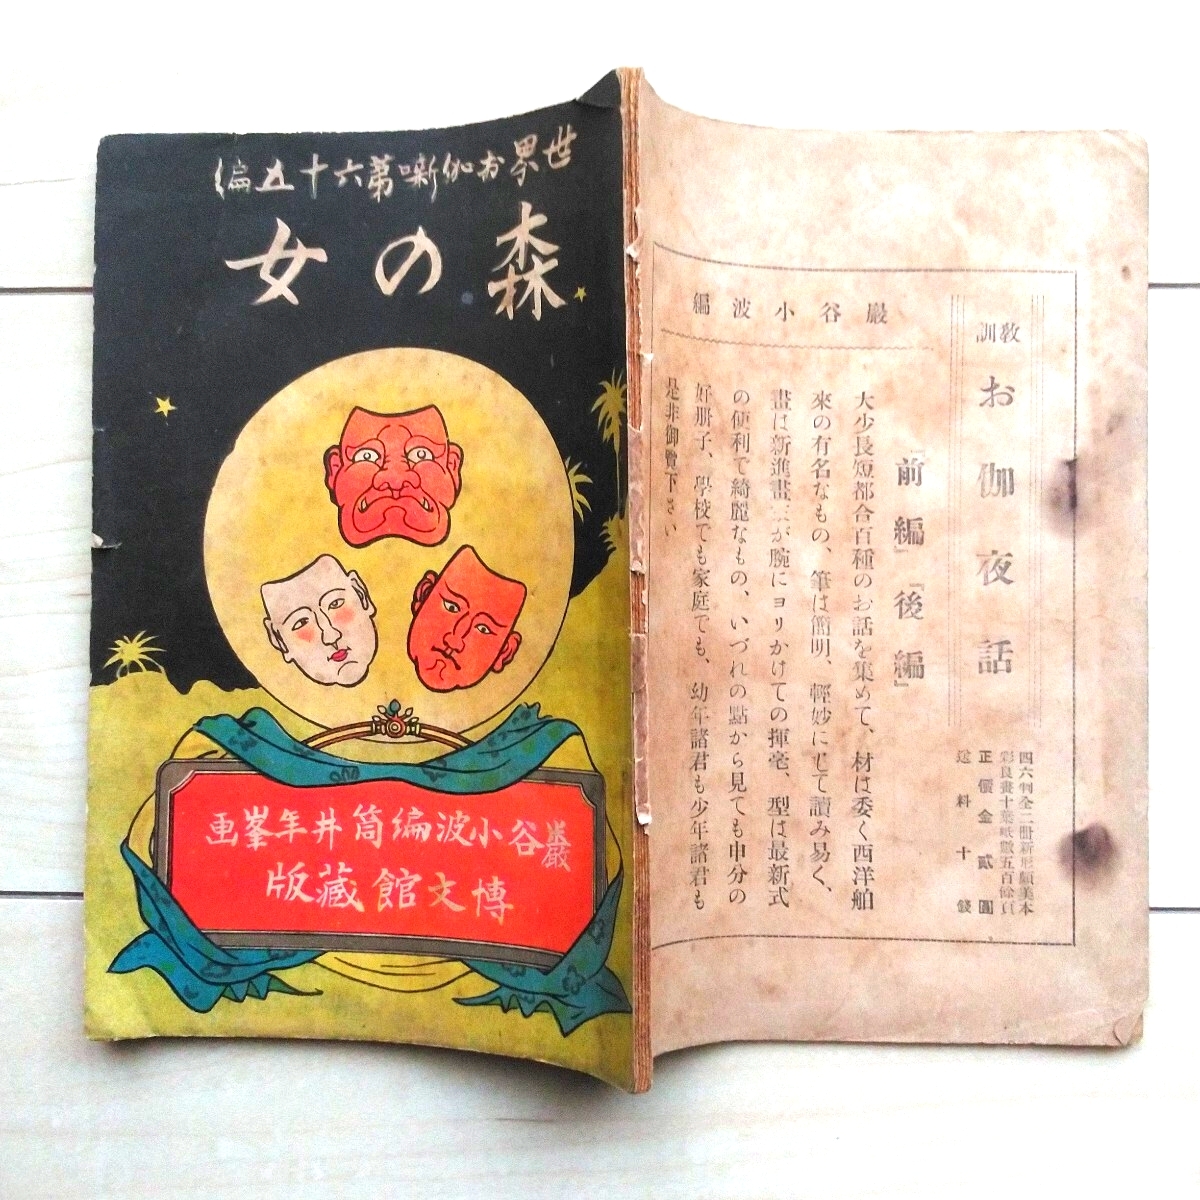 世界お伽噺第六十五編
森の女
巌谷小波編筒井年峯画
博文館蔵版
教訓
お伽夜話
四六判全二冊新形頗美本
彩良畫十葉紙數五百餘頁
正價金貳圓
送料十錢
『前編』『後編』
巖谷小波編
大少長短都合百種のお話を集めて、材は委く西洋舶
來の有名なもの、筆は簡明、輕妙にして讀み易く、
畫は新進畫家が腕にヨリかけての揮毫、型は最新式
の便利で綺麗なもの、いづれの點から見ても申分の
好册子、學校でも家庭でも、幼年諸君も少年諸君も
是非御覽下さい